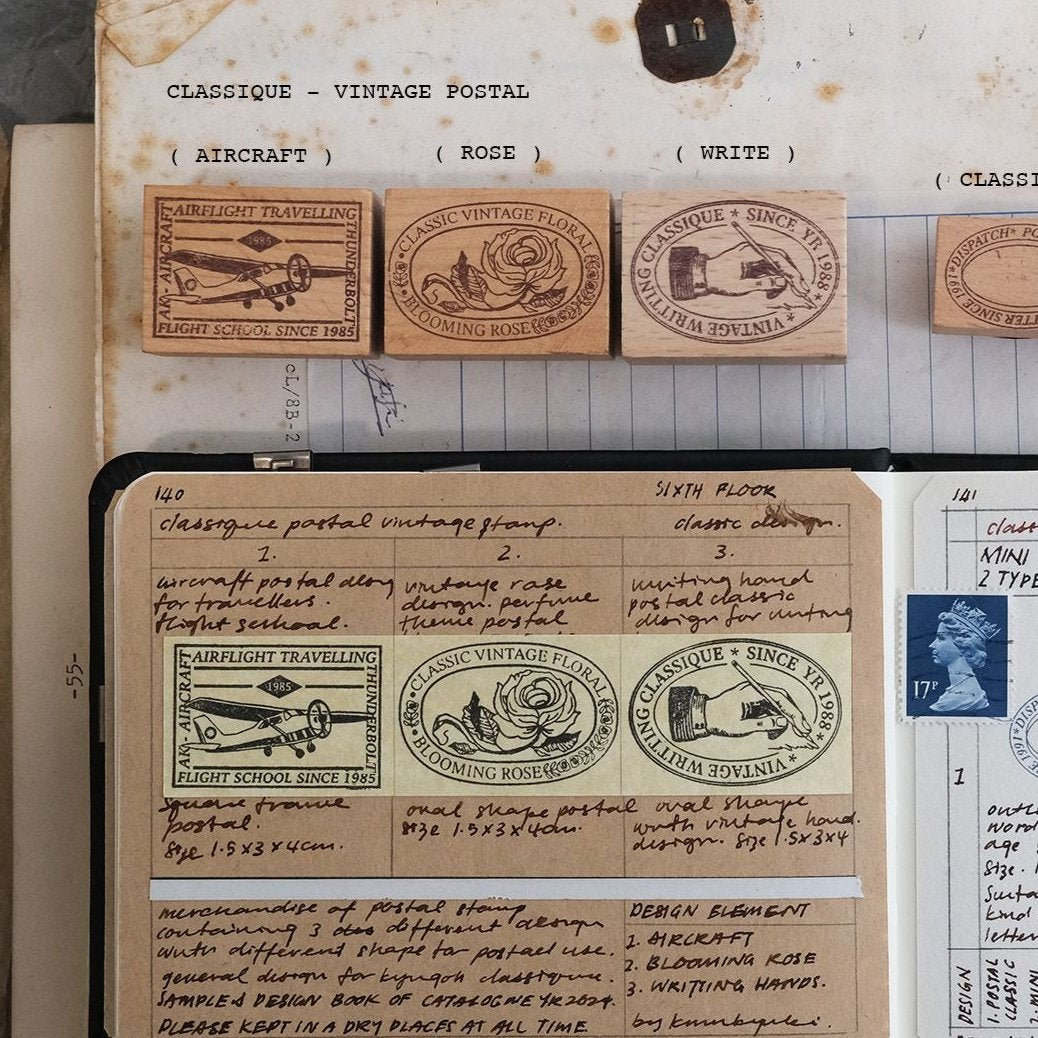 CLASSIQUE - VINTAGE POSTAL
( AIRCRAFT )
( ROSE )
( WRITE )
( CLASSI
AIRFLIGHT TRAVELLING
THUNDERBOLT
AK-AIRCRAFT
1985
FLIGHT SCHOOL SINCE 1985
CLASSIC VINTAGE FLORAL
BLOOMING ROSE
VINTAGE WRITTING CLASSIQUE * SINCE YR 1988 *
*DISPATCH* PO
TTER SINCE 1961
CL/8B-2
-55-
140
SIXTH FLOOR
classique postal vintage stamp.
classic design.
1.
2.
3.
aircraft postal along
for travellers.
flight school.
vintage rose
design. perfume
theme postal
writing hand
postal classic
design for writing
AIRFLIGHT TRAVELLING
THUNDERBOLT
AK-AIRCRAFT
1985
FLIGHT SCHOOL SINCE 1985
CLASSIC VINTAGE FLORAL
BLOOMING ROSE
VINTAGE WRITTING CLASSIQUE * SINCE YR 1988 *
square frame
postal.
size 1.5x3x4cm.
oval shape postal
size 1.5x3x4cm.
oval shape
with vintage hand.
design. size 1.5x3x4
merchandise of postal stamp
containing 3 different design
with different shape for postal use.
general design for classique.
SAMPLE & DESIGN BOOK OF CATALOGNE YR 2024.
PLEASE KEPT IN A DRY PLACES AT ALL TIME
DESIGN ELEMENT
1. AIRCRAFT
2. BLOOMING ROSE
3. WRITTING HANDS.
by
141
class
MINI
2 TYPE
17P
*DISP
E 1961
1
outl
word
age
size. 1
suita
kind
letter
DESIGN
1. POSTAL
CLASSIC
2. MINI